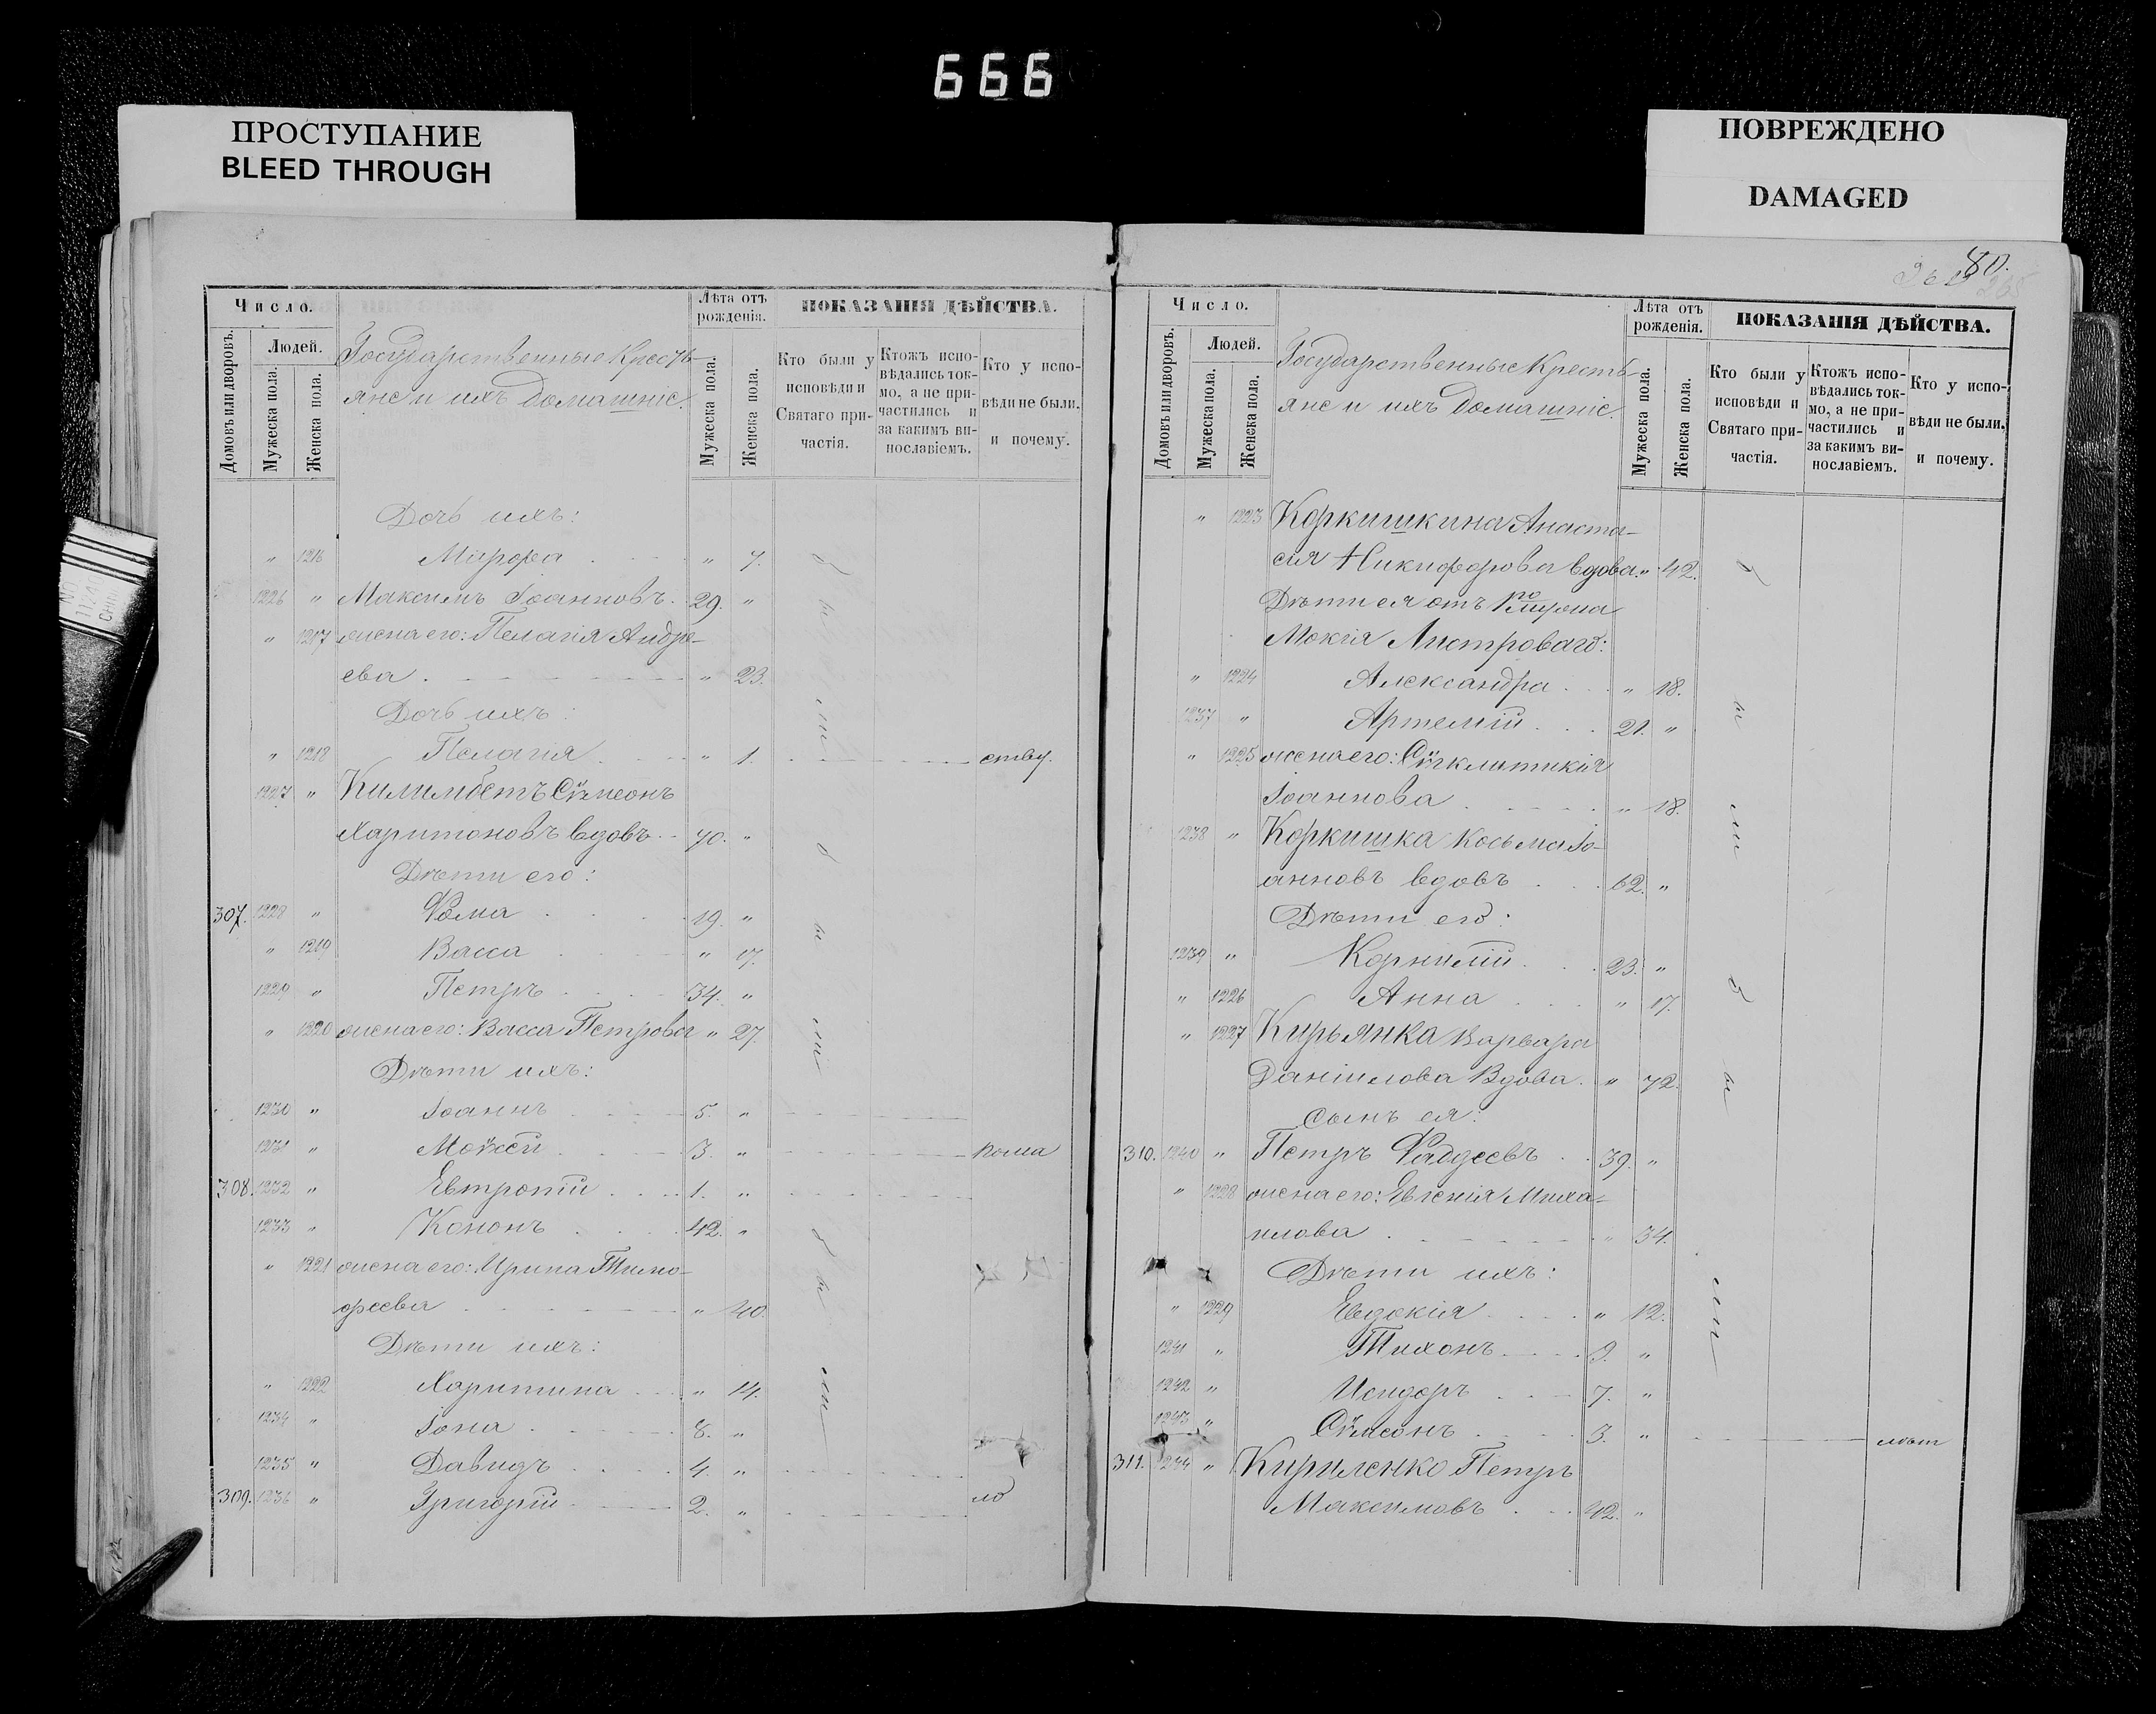 666
ПРОСТУПАНИЕ
BLEED THROUGH
ПОВРЕЖДЕНО
DAMAGED
Число.
Людей.
Домовъ или дворовъ.
Мужеска пола.
Женска пола.
Государственные Кресть-
яне и ихъ домашніе.
Лѣта отъ рожденія.
Мужеска пола.
Женска пола.
ПОКАЗАНІЯ ДѢЙСТВА.
Кто были у исповѣди и Святаго при-частія.
Ктожъ испо-вѣдались ток-мо, а не при-частились и за какимъ ви-нославіемъ.
Кто у испо-вѣди не были, и почему.
Дочь ихъ:
" 1216 Марѳа " 7.
1226 " Максимъ Іоанновъ 29. "
" 1217 жена его: Пелагія Андре-
ева " 23.
Дочь ихъ:
" 1218 Пелагія " 1. ству.
1227 " Килимбетъ Сѵмеонъ
Харитоновъ вдовъ 70. "
Дѣти его:
307. 1228 " Ѳома 19. "
" 1219 Васса " 17.
1229 " Петръ 34. "
" 1220 жена его: Васса Петрова " 27.
Дѣти ихъ:
1230 " Іоаннъ 5. "
1231 " Моѵсей 3. "
308. 1232 " Евтропій 1. "
1233 " Кононъ 42. "
" 1221 жена его: Ирина Тимо-
ѳеева " 40.
Дѣти ихъ:
" 1222 Харитина " 14.
1234 " Іона 8. "
1235 " Давидъ 4. "
309. 1236 " Григорій 2. " ло
бы
ли
бы
ли
бы
ли
80.
Число.
Людей.
Домовъ или дворовъ.
Мужеска пола.
Женска пола.
Государственные Кресть-
яне и ихъ домашніе.
Лѣта отъ рожденія.
Мужеска пола.
Женска пола.
ПОКАЗАНІЯ ДѢЙСТВА.
Кто были у исповѣди и Святаго при-частія.
Ктожъ испо-вѣдались ток-мо, а не при-частились и за какимъ ви-нославіемъ.
Кто у испо-вѣди не были, и почему.
" 1223 Коркишкина Анаста-
сія Никифорова вдова " 42.
Дѣти ея отъ
Мокія Листроваго:
" 1224 Александра " 18.
1237 " Артемій 21. "
" 1225 жена его: Сѵгклитикія
Іоаннова " 18.
1238 " Коркишка Косьма Іо-
анновъ вдовъ 62. "
Дѣти его:
1239 " Корнилій 23. "
" 1226 Анна " 17.
" 1227 Кирьянка Варвара
Даніилова Вдова " 72.
Сынъ ея:
310. 1240 " Петръ Ѳаддеевъ 39. "
" 1228 жена его: Евгенія Миха-
илова " 34.
Дѣти ихъ:
" 1229 Евдокія " 12.
1241 " Тихонъ 9. "
1242 " Исидоръ 7. "
1243 " Сѵмеонъ 3. "
311. 1244 " Кириленко Петръ
Максимовъ 42. "
бы
ли
бы
ли